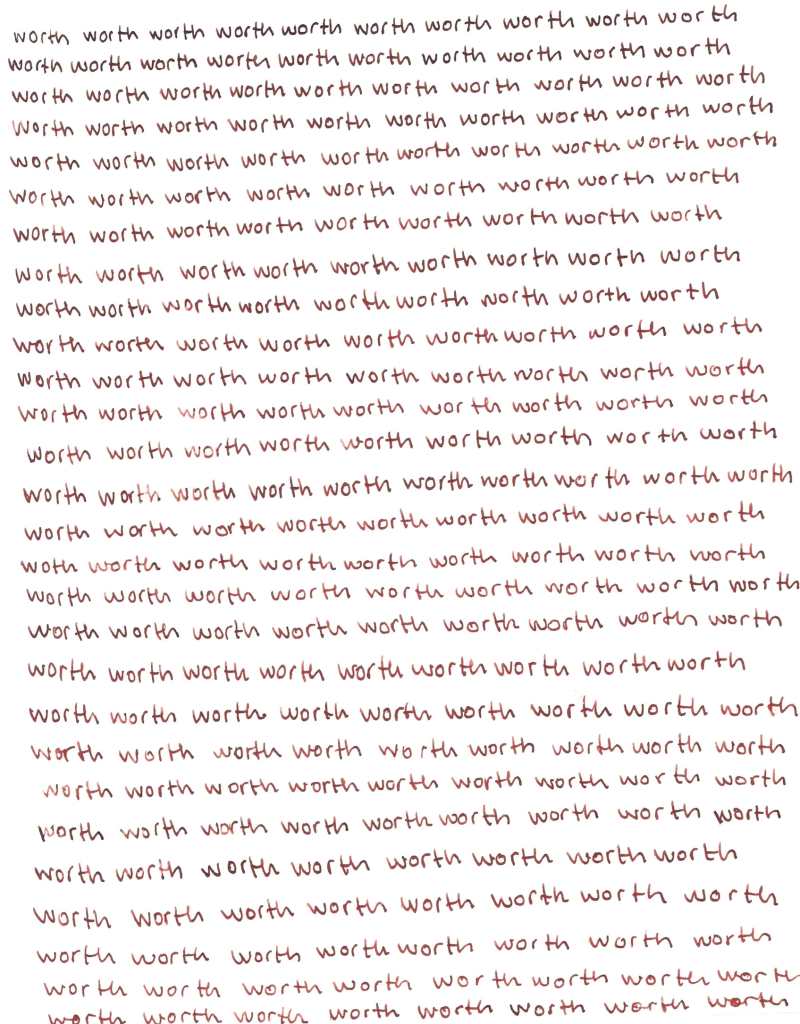 worth worth worth worth worth worth worth worth worth worth
worth worth worth worth worth worth worth worth worth worth
worth worth worth worth worth worth worth worth worth worth
worth worth worth worth worth worth worth worth worth worth
worth worth worth worth worth worth worth worth worth worth
worth worth worth worth worth worth worth worth worth
worth worth worth worth worth worth worth worth worth
worth worth worth worth worth worth worth worth worth
worth worth worth worth worth worth worth worth worth
worth worth worth worth worth worth worth worth worth
worth worth worth worth worth worth worth worth worth
worth worth worth worth worth worth worth worth worth
worth worth worth worth worth worth worth worth worth
worth worth worth worth worth worth worth worth worth worth
worth worth worth worth worth worth worth worth worth
woth worth worth worth worth worth worth worth worth
worth worth worth worth worth worth worth worth worth
worth worth worth worth worth worth worth worth worth
worth worth worth worth worth worth worth worth worth
worth worth worth worth worth worth worth worth worth
worth worth worth worth worth worth worth worth worth
worth worth worth worth worth worth worth worth worth
worth worth worth worth worth worth worth worth worth
worth worth worth worth worth worth worth worth
worth worth worth worth worth worth worth worth
worth worth worth worth worth worth worth worth
worth worth worth worth worth worth worth worth
worth worth worth worth worth worth worth worth